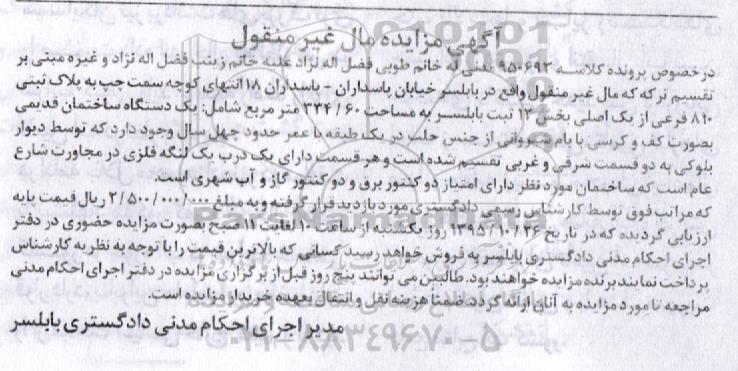 آگهی مزایده مال غیر منقول
درخصوص پرونده کلاسه ۹۵۰۶۹۳ مدنی له خانم طوبی فضل اله نژاد علیه خانم زینب فضل اله نژاد و غیره مبنی بر
تقسیم ترکه که مال غیر منقول واقع در بابلسر خیابان پاسداران - پاسداران ۱۸ انتهای کوچه سمت چپ به پلاک ثبتی
۸۱۰ فرعی از یک اصلی بخش ۱۳ ثبت بابلسر به مساحت ۳۳۴/۶۰ متر مربع شامل: یک دستگاه ساختمان قدیمی
بصورت کف و کرسی با بام شیروانی از جنس حلب در یک طبقه با عمر حدود چهل سال وجود دارد که توسط دیوار
بلوکی به دو قسمت شرقی و غربی تقسیم شده است و هر قسمت دارای یک درب یک لنگه فلزی در مجاورت شارع
عام است که ساختمان مورد نظر دارای امتیاز دو کنتور برق و دو کنتور گاز و آب شهری است.
که مراتب فوق توسط کارشناس رسمی دادگستری مورد بازدید قرار گرفته و به مبلغ ۲/۵۰۰/۰۰۰/۰۰۰ ریال قیمت پایه
ارزیابی گردیده که در تاریخ ۱۳۹۵/۱۰/۲۶ روز یکشنبه از ساعت ۱۰ لغایت ۱۱ صبح بصورت مزایده حضوری در دفتر
اجرای احکام مدنی دادگستری بابلسر به فروش خواهد رسید کسانی که بالاترین قیمت را با توجه به نظریه کارشناس
پرداخت نمایند برنده مزایده خواهند بود. طالبین می توانند پنج روز قبل از برگزاری مزایده در دفتر اجرای احکام مدنی
مراجعه تا مورد مزایده به آنان ارائه گردد. ضمنا هزینه نقل و انتقال بعهده خریدار مزایده است.
مدیر اجرای احکام مدنی دادگستری بابلسر
ParsNamadData
۰۲۱-۸۸۳۴۹۶۷۰-۵